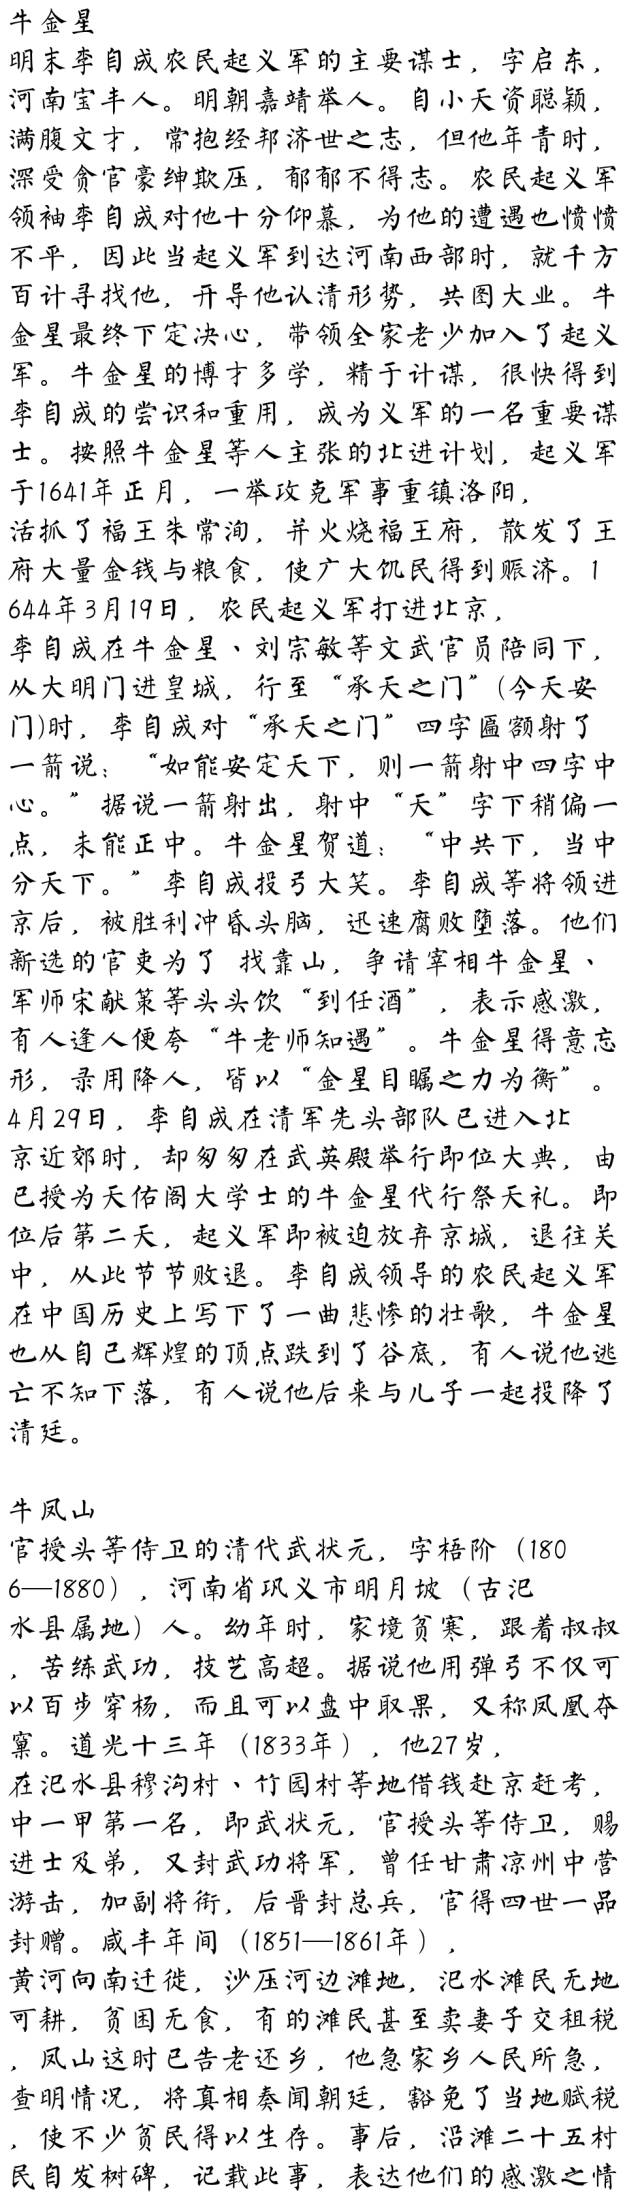 牛金星
明末李自成农民起义军的主要谋士，字启东，
河南宝丰人。明朝嘉靖举人。自小天资聪颖，
满腹文才，常抱经邦济世之志，但他年青时，
深受贪官豪绅欺压，郁郁不得志。农民起义军
领袖李自成对他十分仰慕，为他的遭遇也愤愤
不平，因此当起义军到达河南西部时，就千方
百计寻找他，开导他认清形势，共图大业。牛
金星最终下定决心，带领全家老少加入了起义
军。牛金星的博才多学，精于计谋，很快得到
李自成的尝识和重用，成为义军的一名重要谋
士。按照牛金星等人主张的北进计划，起义军
于1641年正月，一举攻克军事重镇洛阳，
活抓了福王朱常洵，并火烧福王府，散发了王
府大量金钱与粮食，使广大饥民得到赈济。1
644年3月19日，农民起义军打进北京，
李自成在牛金星、刘宗敏等文武官员陪同下，
从大明门进皇城，行至“承天之门”(今天安
门)时，李自成对“承天之门”四字匾额射了
一箭说：“如能安定天下，则一箭射中四字中
心。”据说一箭射出，射中“天”字下稍偏一
点，未能正中。牛金星贺道：“中共下，当中
分天下。”李自成投弓大笑。李自成等将领进
京后，被胜利冲昏头脑，迅速腐败堕落。他们
新选的官吏为了 找靠山，争请宰相牛金星、
军师宋献策等头头饮“到任酒”，表示感激，
有人逢人便夸“牛老师知遇”。牛金星得意忘
形，录用降人，皆以“金星目瞩之力为衡”。
4月29日，李自成在清军先头部队已进入北
京近郊时，却匆匆在武英殿举行即位大典，由
已授为天佑阁大学士的牛金星代行祭天礼。即
位后第二天，起义军即被迫放弃京城，退往关
中，从此节节败退。李自成领导的农民起义军
在中国历史上写下了一曲悲惨的壮歌，牛金星
也从自己辉煌的顶点跌到了谷底，有人说他逃
亡不知下落，有人说他后来与儿子一起投降了
清廷。
牛凤山
官授头等侍卫的清代武状元，字梧阶（180
6—1880），河南省巩义市明月坡（古汜
水县属地）人。幼年时，家境贫寒，跟着叔叔
，苦练武功，技艺高超。据说他用弹弓不仅可
以百步穿杨，而且可以盘中取果，又称凤凰夺
窠。道光十三年（1833年），他27岁，
在汜水县穆沟村、竹园村等地借钱赴京赶考，
中一甲第一名，即武状元，官授头等侍卫，赐
进士及弟，又封武功将军，曾任甘肃凉州中营
游击，加副将衔，后晋封总兵，官得四世一品
封赠。咸丰年间（1851—1861年），
黄河向南迁徙，沙压河边滩地，汜水滩民无地
可耕，贫困无食，有的滩民甚至卖妻子交租税
，凤山这时已告老还乡，他急家乡人民所急，
查明情况，将真相奏闻朝廷，豁免了当地赋税
，使不少贫民得以生存。事后，沿滩二十五村
民自发树碑，记载此事，表达他们的感激之情